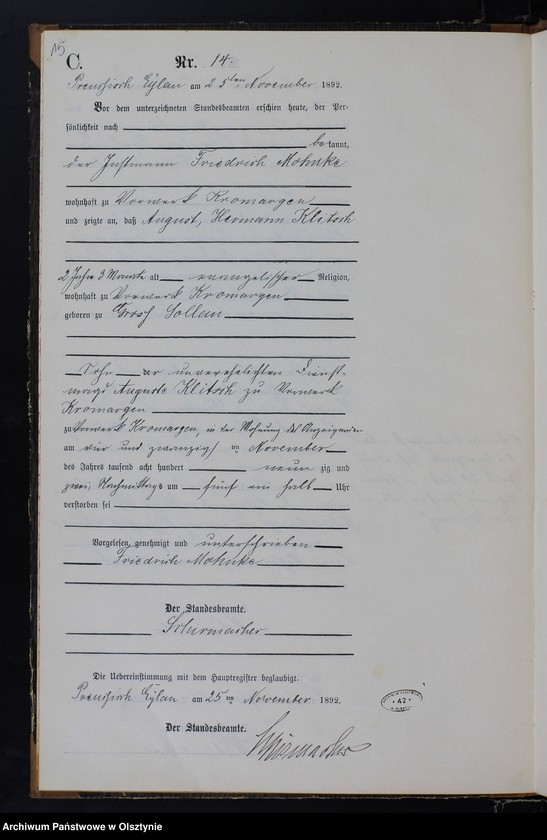 15
C.
Nr. 14.
Preussisch Eylau am 25ten November 1892.
Vor dem unterzeichneten Standesbeamten erschien heute, der Per-
sönlichkeit nach
bekannt,
der Instmann Friedrich Mohnke
wohnhaft zu Vorwerk Kromargen
und zeigte an, daß August, Hermann Klitsch
2 Jahre 3 Monate alt evangelischer Religion,
wohnhaft zu Vorwerk Kromargen
geboren zu Gross Sollau
Sohn der unverehelichten Dienst-
magd Auguste Klitsch zu Vorwerk
Kromargen
zu Vorwerk Kromargen, in der Wohnung des Anzeigenden
am vier und zwanzigsten November
des Jahres tausend acht hundert neunzig und
zwei, Nachmittags um fünf ein halb Uhr
verstorben sei
Vorgelesen, genehmigt und unterschrieben
Friedrich Mohnke
Der Standesbeamte.
Schirmacher
Die Uebereinstimmung mit dem Hauptregister beglaubigt.
Preussisch Eylau am 25ten November 1892.
Der Standesbeamte.
Schirmacher
42
Archiwum Państwowe w Olsztynie